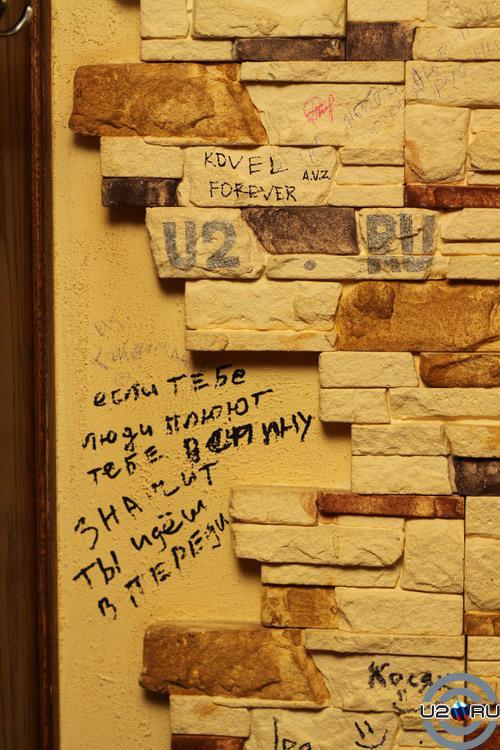 KOVEL
FOREVER
A.V.Z.
U2.RU
если тебе
люди плюют
тебе в спину
значит
ты идёш
в переди
U2.RU